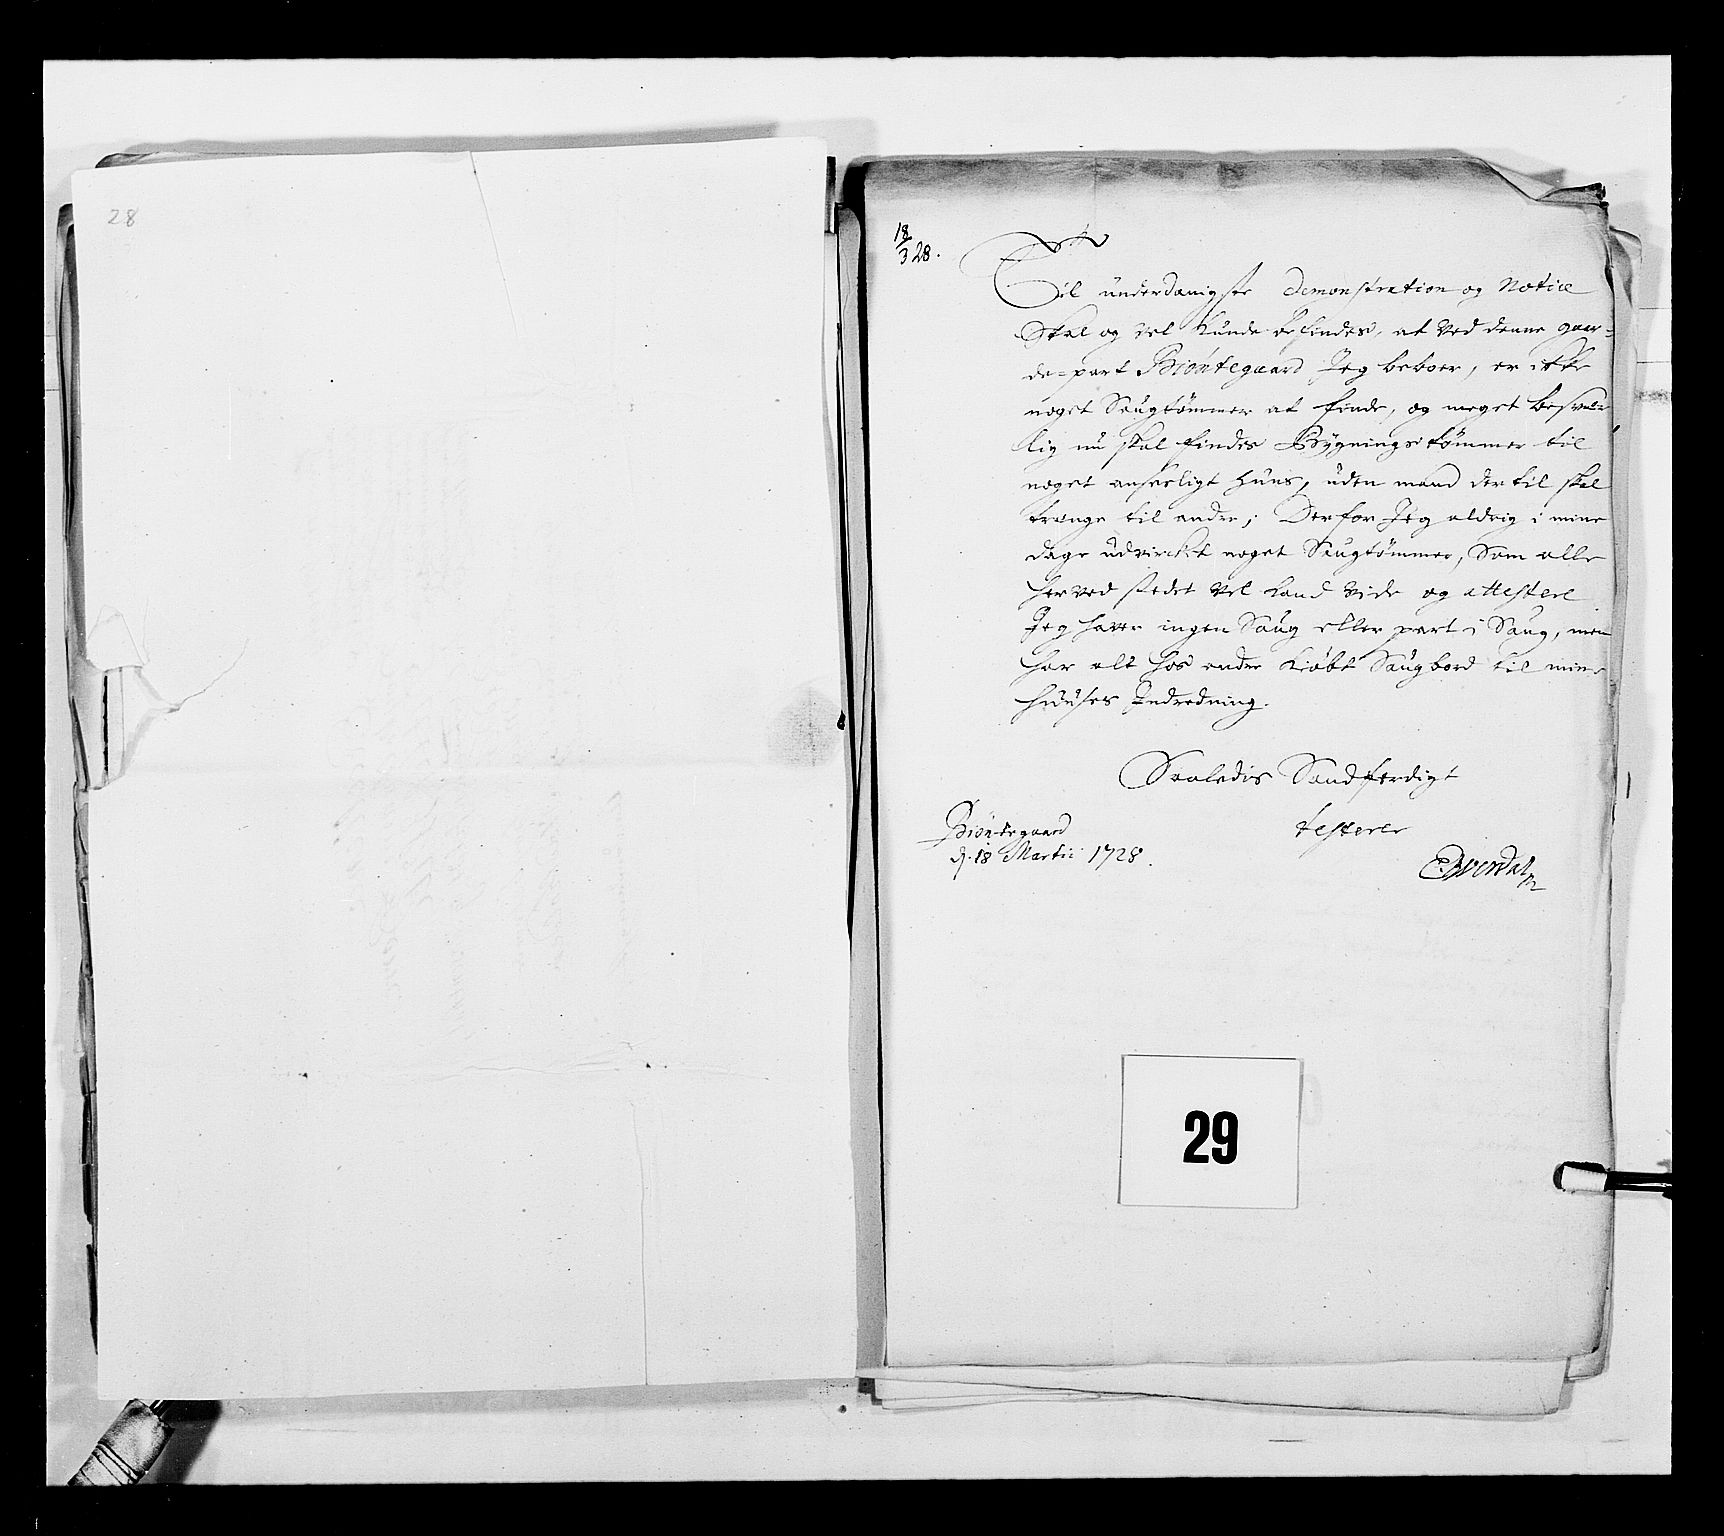 28
18/3 28.
Til underdanigste Demonstration og Notice
Skal og vel kunde befindes, at ved denne gaar-
de-part Biöntegaard Jeg beboer, er ikke
noget Saugtömmer at finde, og meget besvær
lig nu skal findes Bygnings tömmer til
noget anseeligt Huus, uden mand der til skal
trænge til andre; Derfor Jeg aldrig i mine
dage udvirckt noget Saugtömmer, Som alle
her ved stedet vel kand vide og attestere
Jeg haver ingen Saug eller part i Saug, men
har alt hos andre kiöbt Saugbord til mine
Huuses Indredning.
Saaledis Sandferdigt
testerer
Biöntegaard
d. 18 Martii 1728.
29